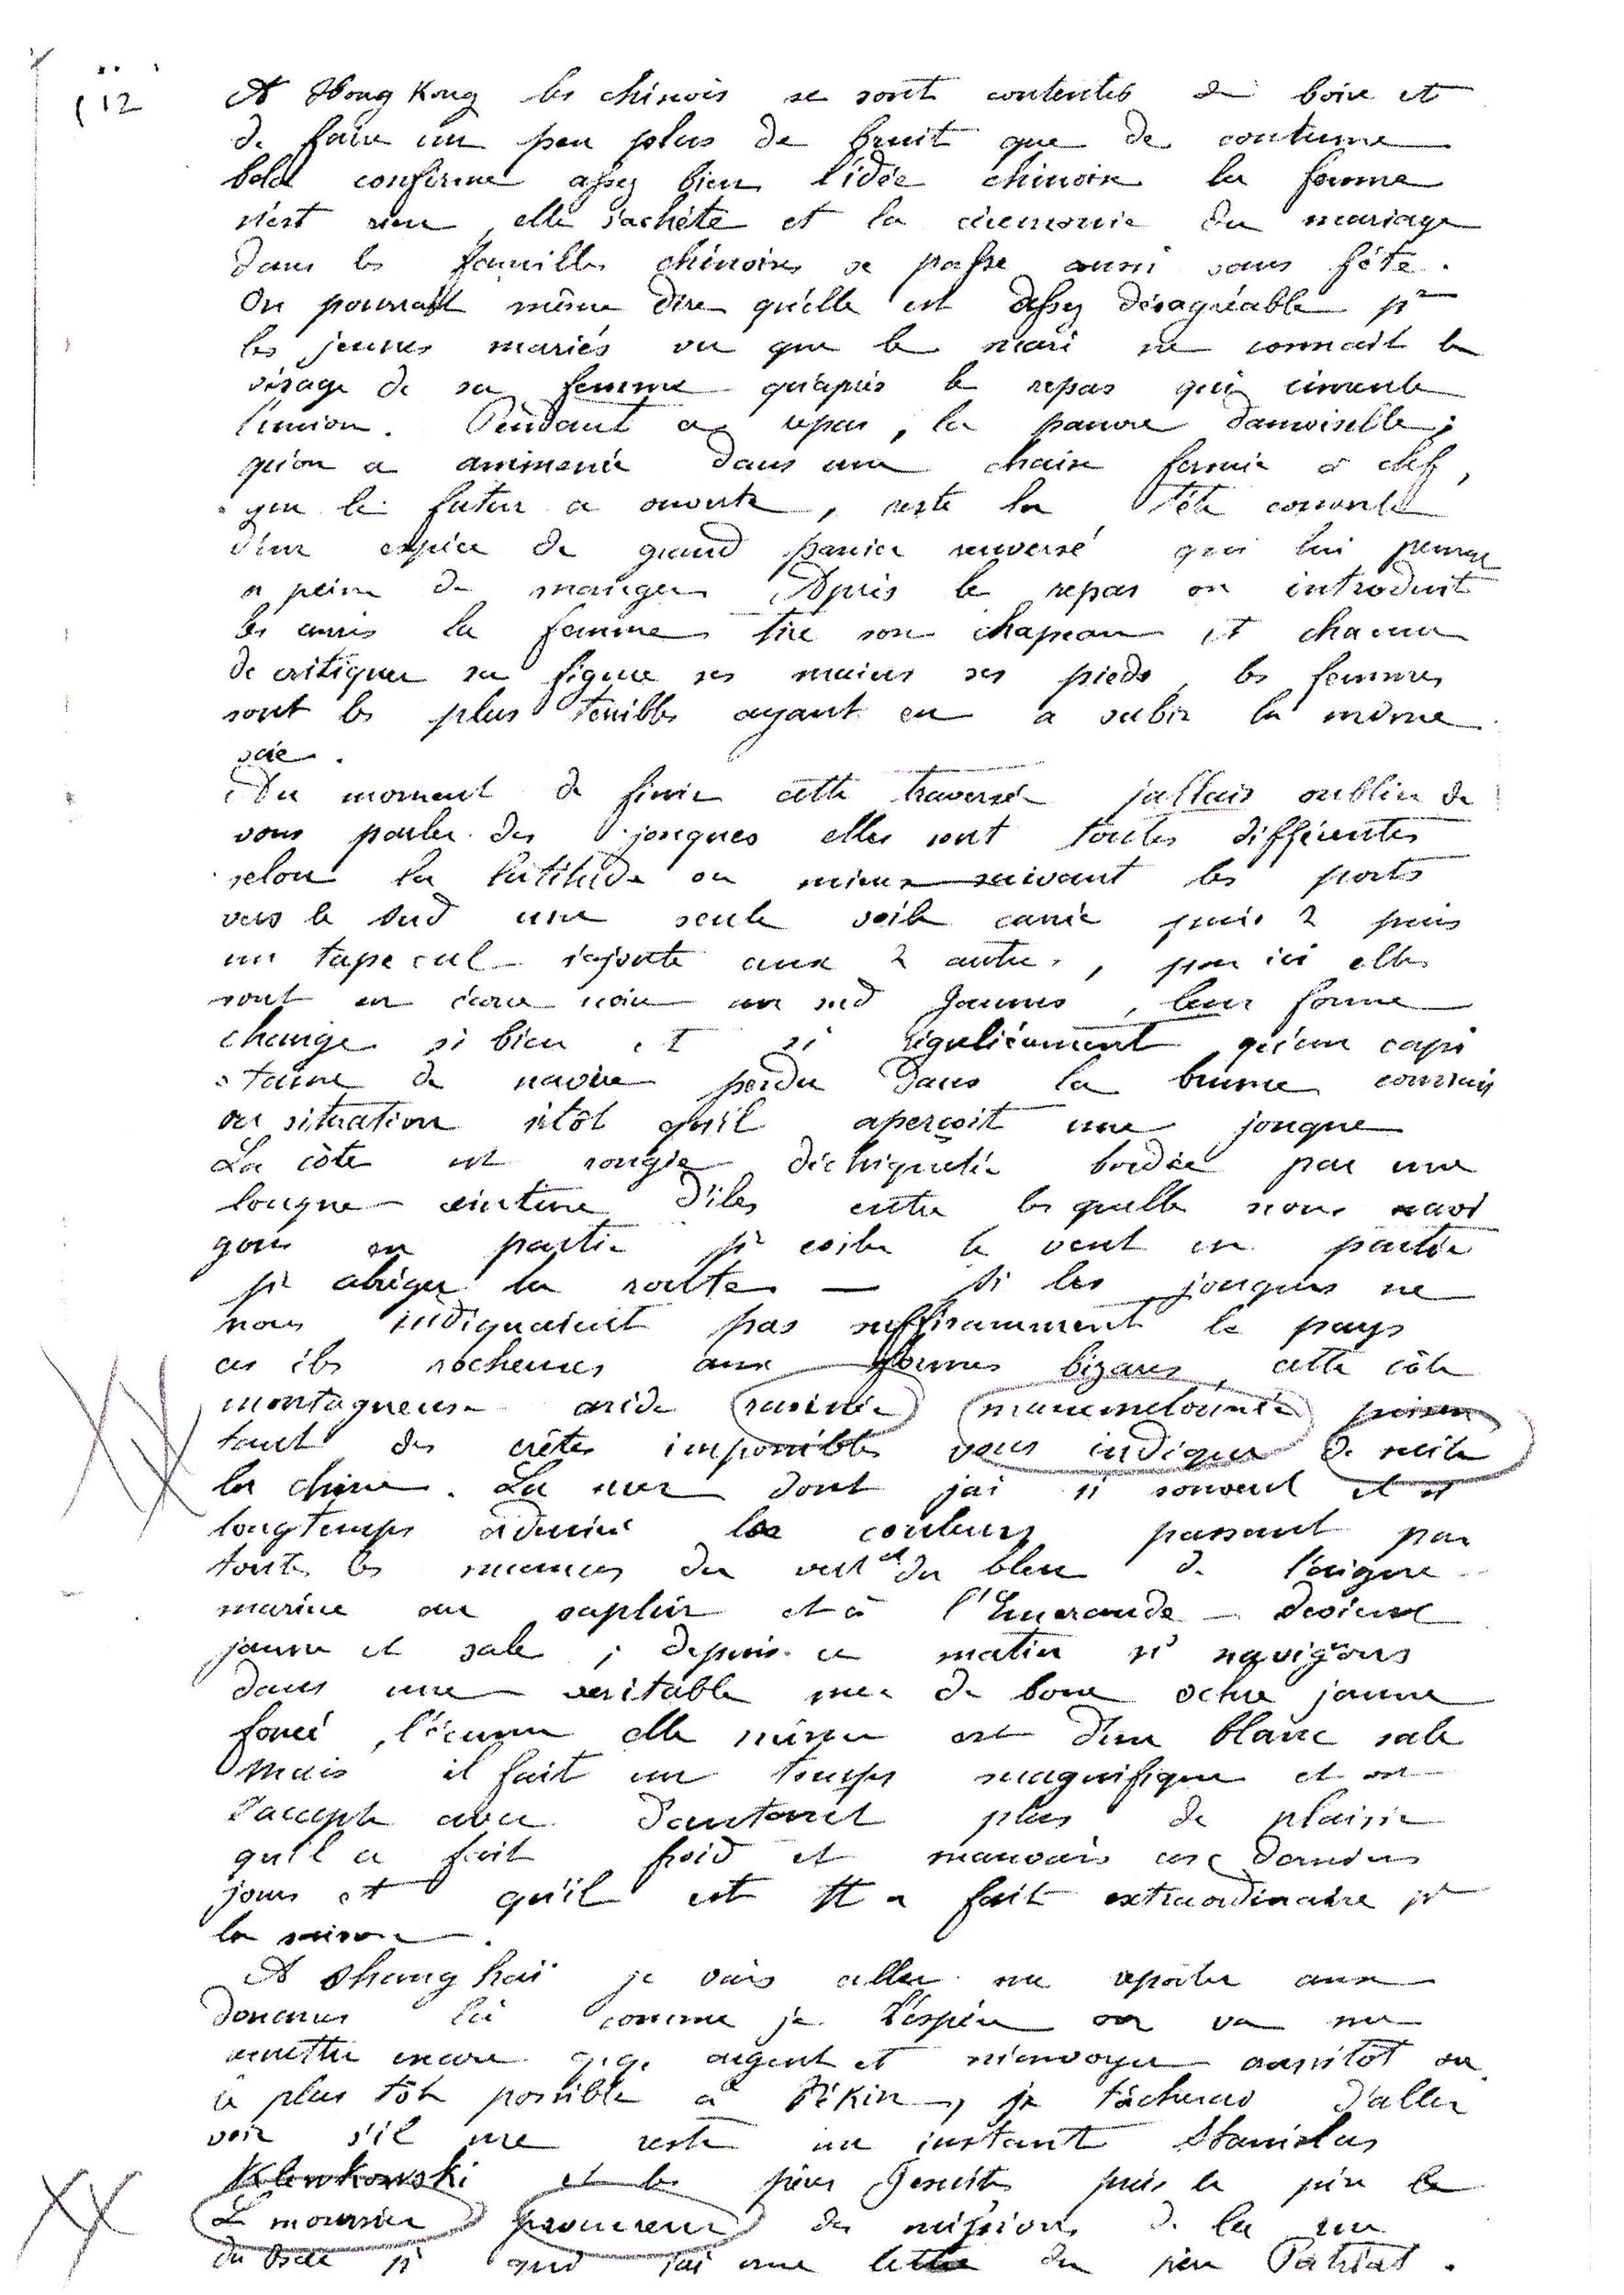 12
A Hong Kong les chinois se sont contentés de boire et
de faire un peu plus de bruit que de coutume
Cela confirme assez bien l'idée chinoise la femme
n'est rien, elle s'achète et la cérémonie du mariage
dans les familles chinoises se passe aussi sans fête.
On pourrait même dire qu'elle est assez désagréable pr
les jeunes mariés vu que le mari ne connait le
visage de sa femme qu'après le repas qui cimente
l'union. Pendant ce repas, la pauvre damoiselle,
qu'on a ammenée dans une chaise fermée à clef,
que le futur a ouverte, reste la tête couverte
d'une espèce de grand panier renversé qui lui permet
a peine de manger Après le repas on introduit
les amis la femme tire son chapeau et chacun
de critiquer sa figure ses mains ses pieds, les femmes
sont les plus terribles ayant eu a subir la même
scie.
Du moment de finir cette traversée j'allais oublier de
vous parler des jonques elles sont toutes différentes
selon la latitude ou mieux suivant les ports
vers le sud une seule voile carrée puis 2 puis
un tape cul s'ajoute aux 2 autres, par ici elles
sont en écorce noire au sud jaunes, leur forme
change si bien et si régulièrement qu'un capi
taine de navire perdu dans la brume connait
sa situation sitôt qu'il aperçoit une jonque
La côte est rongée déchiquetée bordée par une
longue ceinture d'iles entre les quelles nous navi
gons en partie pr éviter le vent en partie
pr abréger la route — Si les jonques ne
nous indiquaient pas suffisamment le pays
ces iles rocheuses aux formes bizares, cette côte
montagneuse aride ravinée mammelonnée
tant des crêtes impossibles vous indique de suite
la chine. La mer dont j'ai si souvent et si
longtemps admiré les couleurs passant par
toutes les nuances du vert et du bleu de l'aigue
marine au saphir et à l'Emeraude — devient
jaune et sale ; depuis ce matin ns navigons
dans une veritable mer de boue ochre jaune
foncé, l'écume elle même est d'un blanc sale
Mais il fait un temps magnifique et on
l'accepte avec d'autant plus de plaisir
qu'il a fait froid et mauvais ces derniers
jours et qu'il est tt a fait extraordinaire pr
la saison.
A Shang haï je vais aller me reporter aux
douanes là comme je l'espère on va me
remettre encore qque argent et m'envoyer aussitôt ou
le plus tôt possible à Pékin, je tâcherai d'aller
voir s'il me reste un instant Stanislas
Klewkowski et les pères Jesuites puis le père
Le mounier procureur des missions de la rue
du Bac pr qui j'ai une lettre du père Patriat.